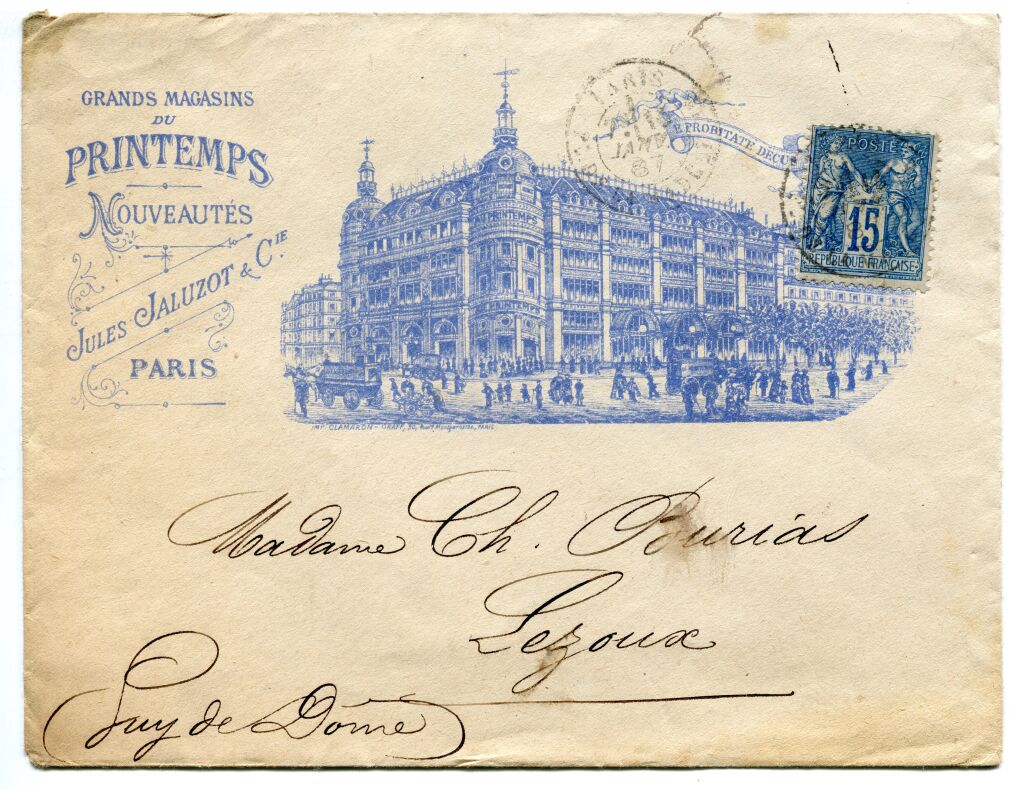 GRANDS MAGASINS
DU
PRINTEMPS
NOUVEAUTÉS
JULES JALUZOT & CIE
PARIS
E PROBITATE DECU
AU PRINTEMPS
PARIS
JANV
87
POSTES
15
REPUBLIQUE FRANÇAISE
IMP. CLAMARON-GRAFF, PARIS
Madame Ch. Bourias
Lezoux
Puy de Dôme